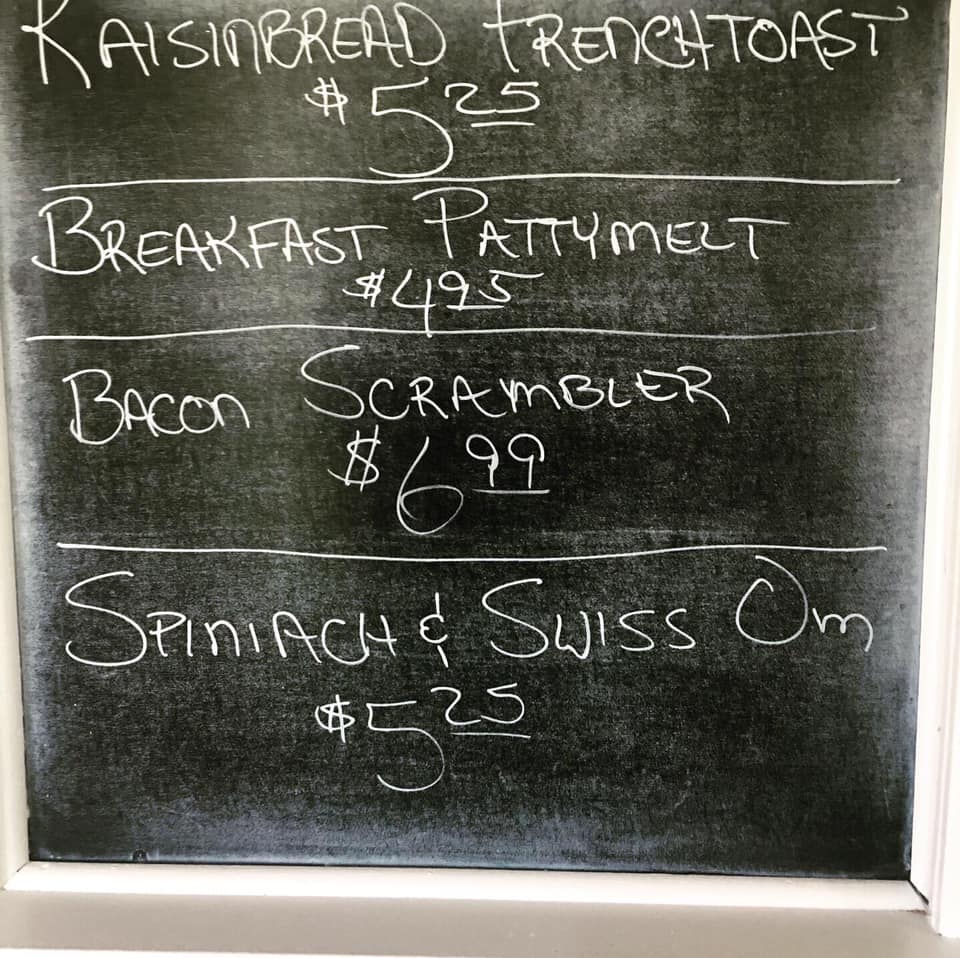 RAISINBREAD FRENCH TOAST
$5 25
BREAKFAST PATTYMELT
$4 95
BACON SCRAMBLER
$6 99
SPINIACH & SWISS OM
$5 25